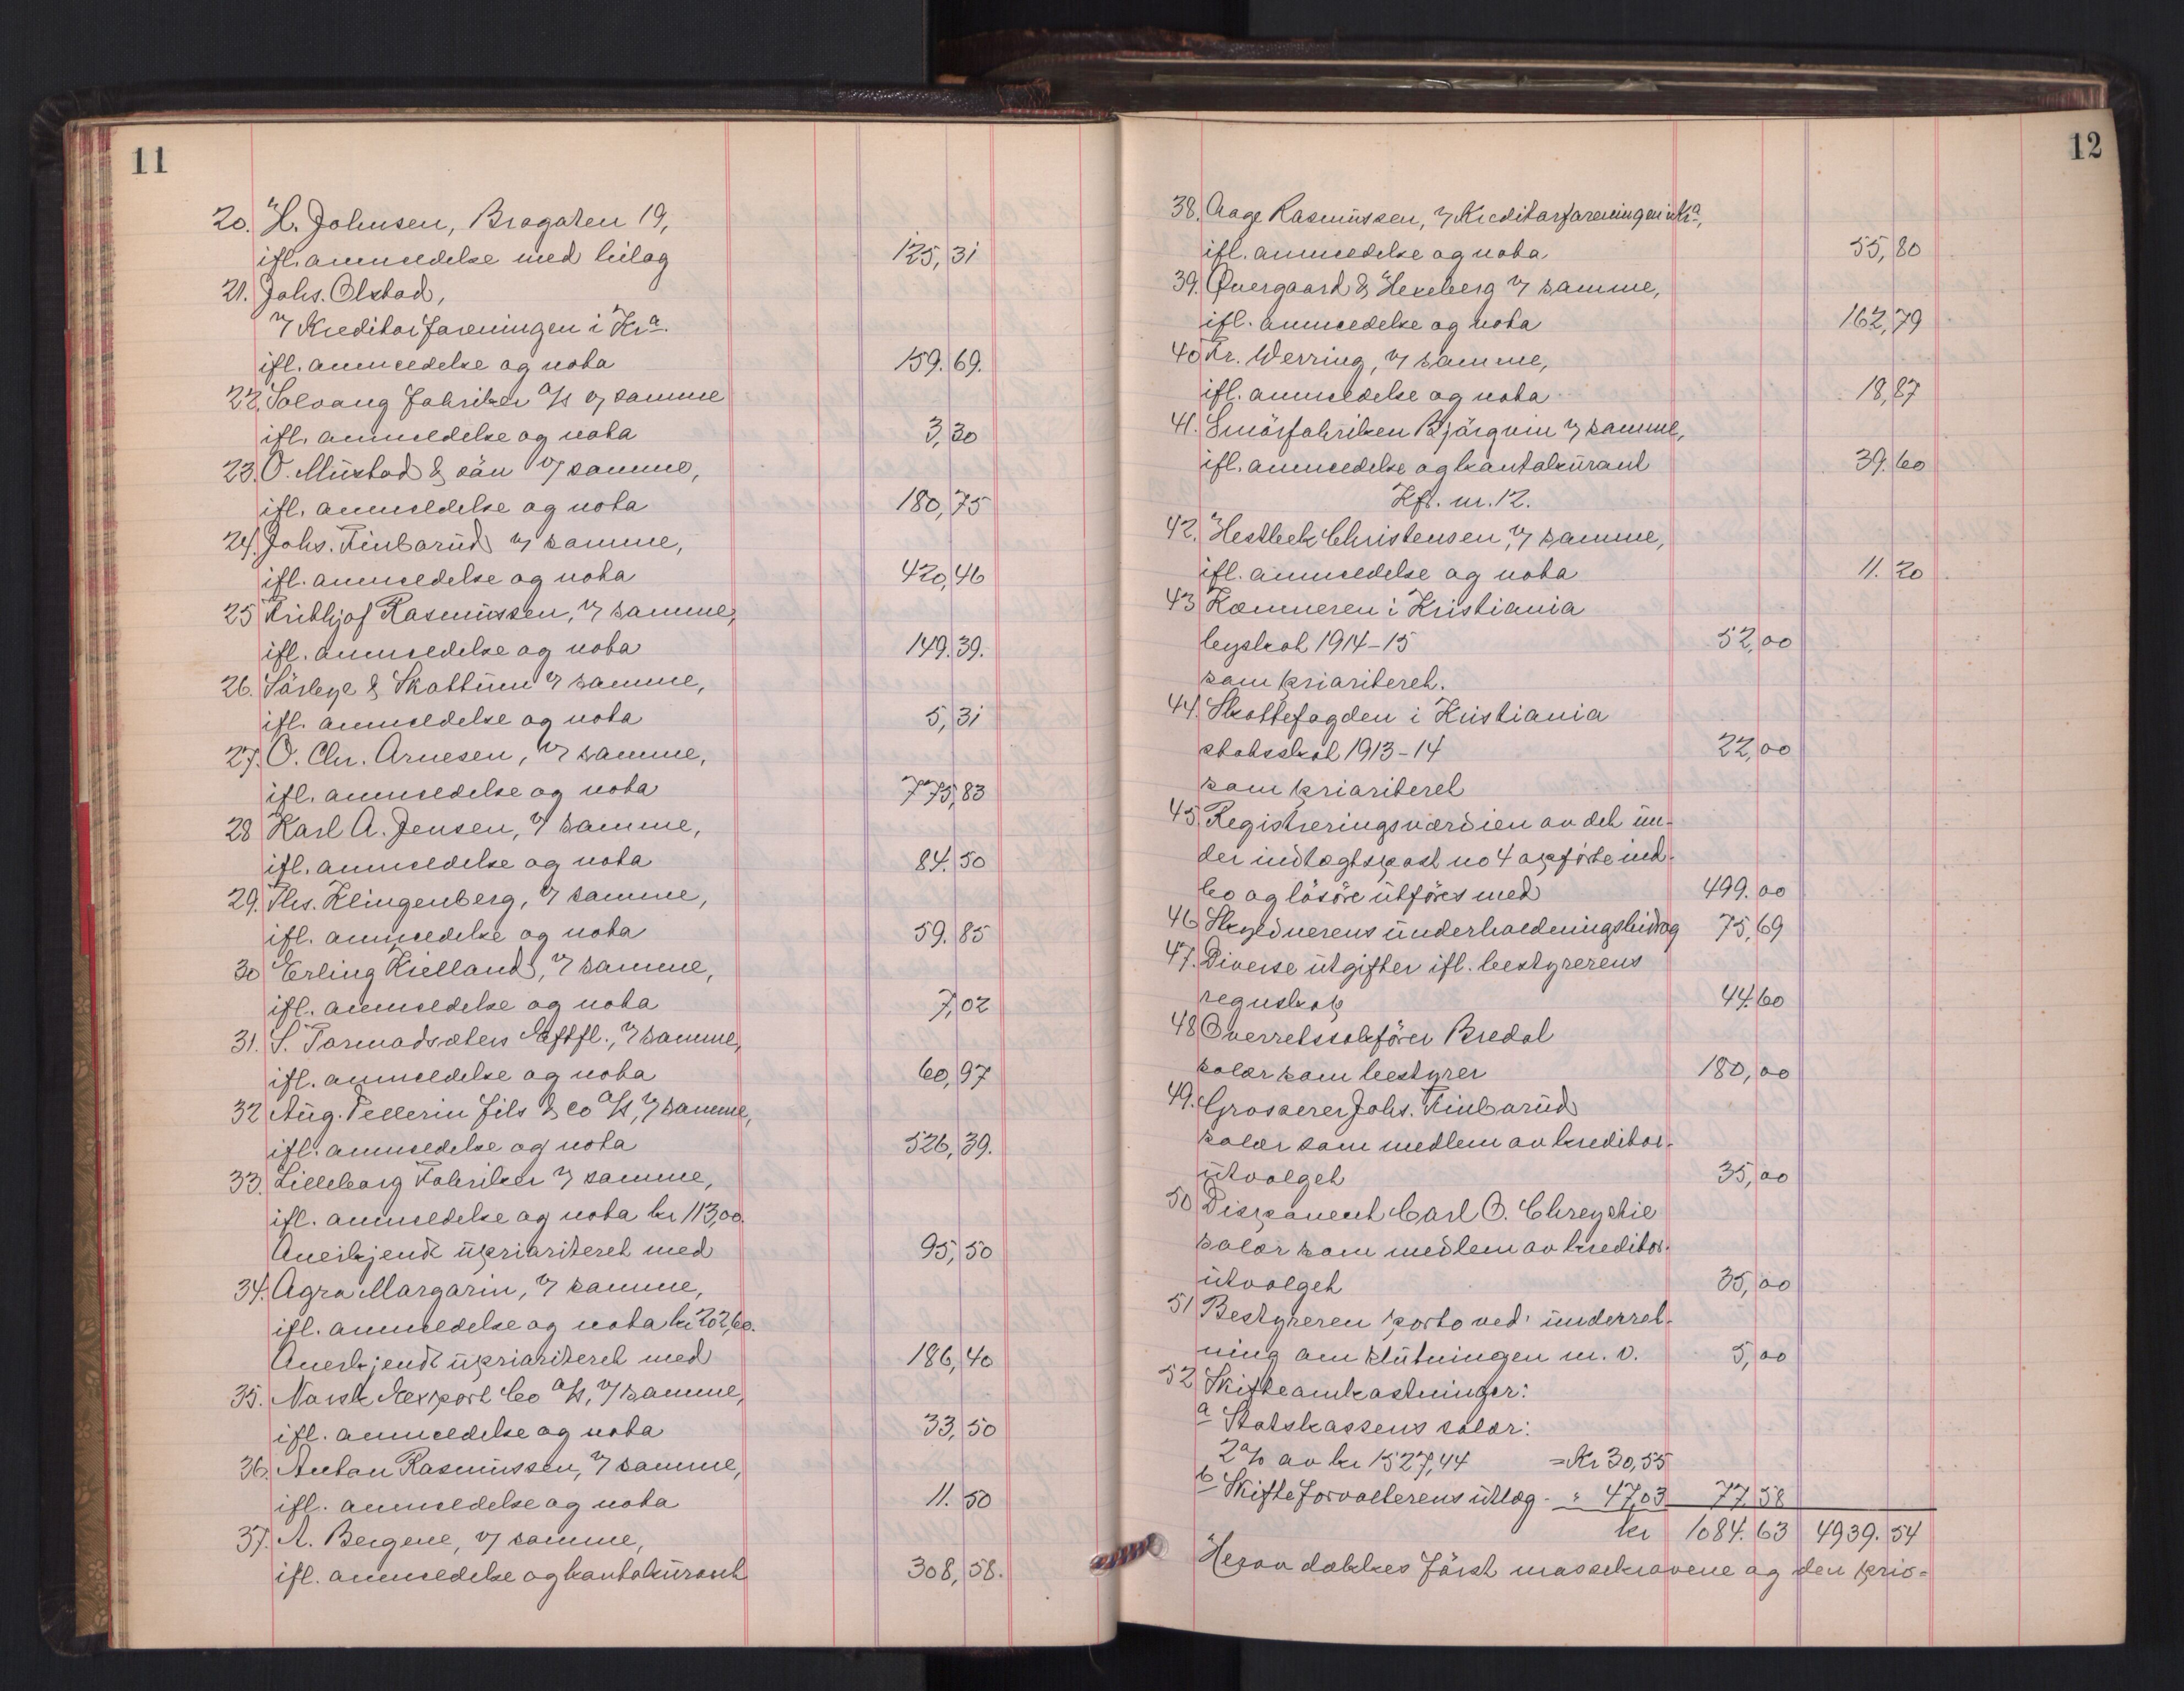 11
20. H. Johnsen, Brogaten 19,
ifl. anmeldelse med bilag 125,31
21. Johs. Olstad,
v/ Kreditorforeningen i Kra.
ifl. anmeldelse og nota 159.69.
22. Solvang Fabriker A/S v/ samme
ifl. anmeldelse og nota 3,30
23. O. Mustad & sön v/ samme,
ifl. anmeldelse og nota 180,75
24. Johs. Finborud v/ samme,
ifl. anmeldelse og nota 420,46
25 Frithjof Rasmussen, v/ samme,
ifl. anmeldelse og nota 149.39.
26. Sörbye & Skattum v/ samme,
ifl. anmeldelse og nota 5,31
27. O. Chr. Arnesen, v/ samme,
ifl. anmeldelse og nota 775,83
28 Karl A. Jensen, v/ samme,
ifl. anmeldelse og nota 84.50
29. Ths. Klingenberg, v/ samme,
ifl. anmeldelse og nota 59.85
30 Erling Kielland, v/ samme,
ifl. anmeldelse og nota 7,02
31. S. Tormodsæters Eftfl., v/ samme,
ifl. anmeldelse og nota 60,97
32 Aug. Pellerin fils & Co A/S, v/ samme,
ifl. anmeldelse og nota 526,39.
33. Lilleborg Fabriker v/ samme,
ifl. anmeldelse og nota kr 113,00.
Anerkjendt uprioritert med 95,50
34. Agra Margarin, v/ samme,
ifl. anmeldelse og nota kr 202,60.
Anerkjendt uprioriteret med 186,40
35. Norsk Export Co A/S, v/ samme,
ifl. anmeldelse og nota 33,50
36. Anton Rasmussen, v/ samme,
ifl. anmeldelse og nota 11.50
37. A. Bergene, v/ samme,
ifl. anmeldelse og kontokurant 308,58.
12
38. Aage Rasmussen, v/ Kreditorforeningen i Kra,
ifl. anmeldelse og nota 55,80
39. Övergaard & Hexeberg v/ samme,
ifl. anmeldelse og nota 162,79
40 Fr. Werring, v/ samme,
ifl. anmeldelse og nota 18,87
41. Smörfabriken Björgvin v/ samme,
ifl. anmeldelse og kontokurant 39.60
Kfr. nr. 12.
42. Hestbek Christensen, v/ samme,
ifl. anmeldelse og nota 11.20
43 Kemneren i Kristiania
byskat 1914-15 52,00
som prioriteret.
44. Skattefogden i Kristiania
statsskat 1913-14 22,00
som prioriteret
45 Registreringsværdien av det un-
der indtægtspost no 4 opförte ind-
bo og lösöre utföres med 499.00
46 Skyldnerens underholdningsbidrag 75,69
47. Diverse utgifter ifl. bestyrerens
regnskap 44.60
48 Overretssakförer Bredal
salær som bestyrer 180,00
49. Grosserer Johs. Finborud
salær som medlem av kreditor-
utvalget 35,00
50 Disponent Carl O. Chreystie
salær som medlem av kreditor-
utvalget 35,00
51 Bestyreren porto ved underret-
ning om slutningen m. v. 5,00
52 Skifteomkostninger:
a Statskassens salær:
2% av kr 1527,44 = Kr 30,55
b Skifteforvalterens utlæg - " 47,03 77.58
kr 1084.63 4939.54
Herav dækkes först massekravene og den prio-